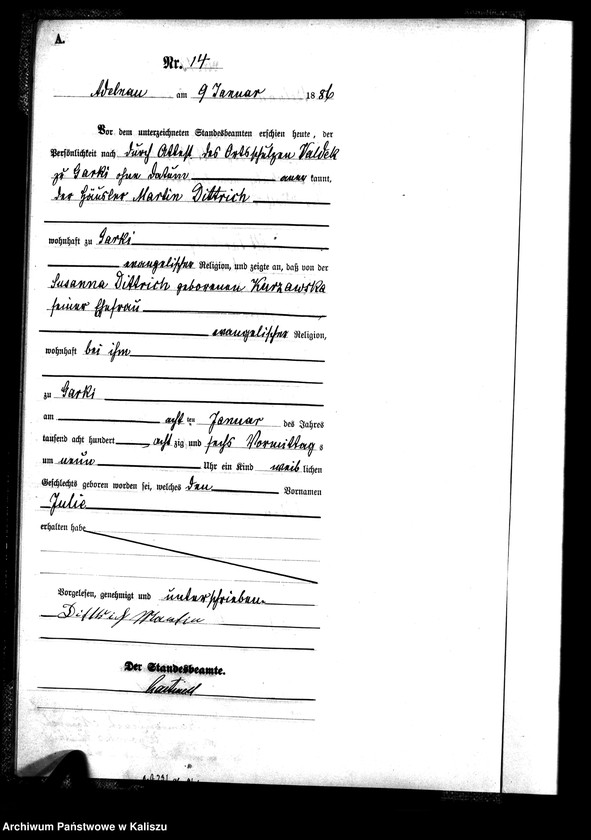 A.
Nr. 14
Adelnau am 9 Januar 1886
Vor dem unterzeichneten Standesbeamten erschien heute, der
Persönlichkeit nach durch Attest des Ortsschulzen Valdek
zu Garki ohne Datum aner kannt,
der Häusler Martin Dittrich
wohnhaft zu Garki
evangelischer Religion, und zeigte an, daß von der
Susanna Dittrich geborenen Kurzawska
seiner Ehefrau
evangelischer Religion,
wohnhaft bei ihm
zu Garki
am acht ten Januar des Jahres
tausend acht hundert acht zig und sechs Vormittag s
um neun Uhr ein Kind weib lichen
Geschlechts geboren worden sei, welches den Vornamen
Julie
erhalten habe
Vorgelesen, genehmigt und unterschrieben.
Dittrich Martin
Der Standesbeamte.
Archiwum Państwowe w Kaliszu